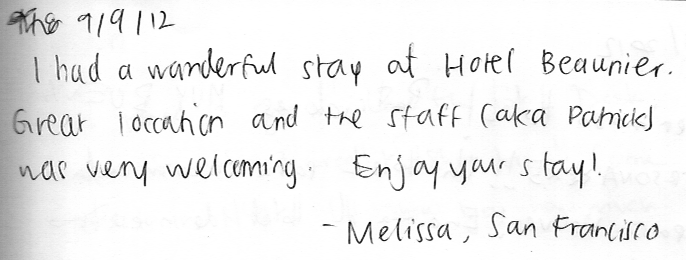 The 9/9/12
I had a wonderful stay at Hotel Beaunier.
Great loccation and the staff (aka Patrick)
was very welcoming. Enjoy your stay!
- Melissa, San Francisco